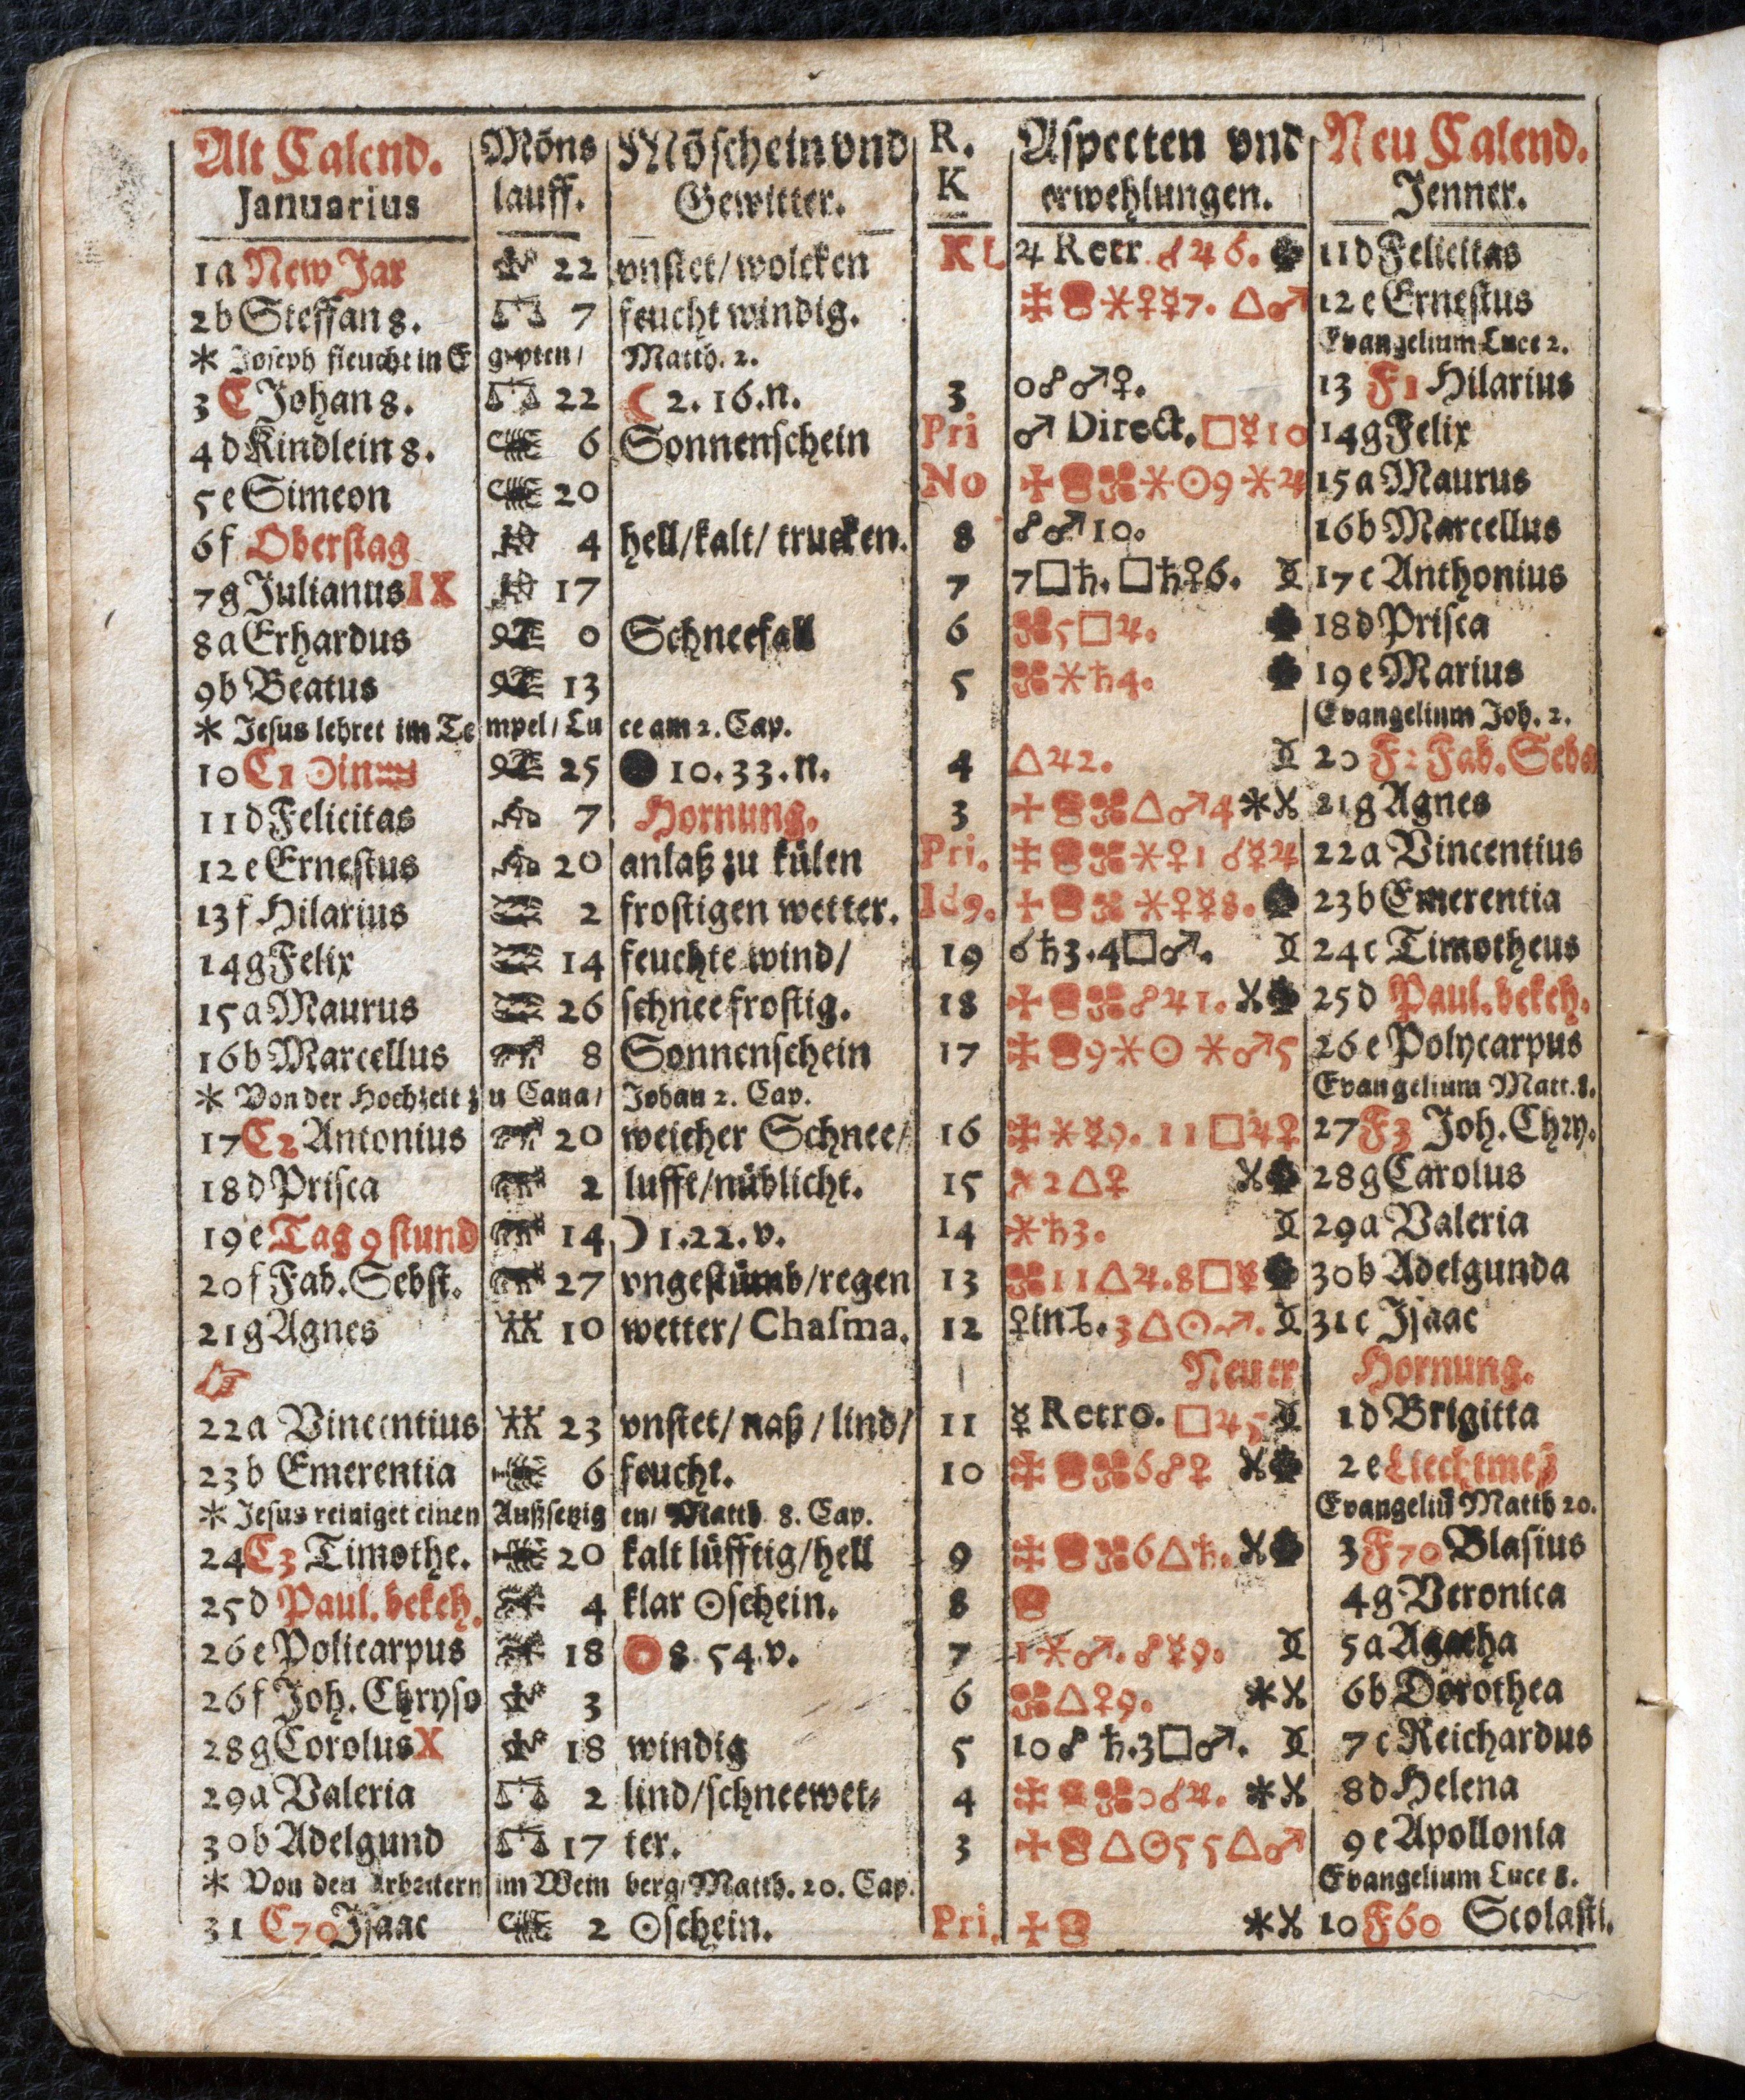 Alt Calend. Mõns Mõschein vnd R. Aspecten vnd Neu Calend.
Januarius lauff. Gewitter. K erwehlungen. Jenner.
1a New Jar 22 vnstet/wolcken KL ♃ Retr. ☌♃6. 11d Felicitas
2b Steffan 8. ♎ 7 feucht windig. ⚹♀☿7. △♂ 12e Ernestus
* Joseph fleucht in Egypten/ Matth. 2. Evangelium Luce 2.
3 C Johan 8. ♎ 22 ☾ 2. 16. n. 3 0☍♂♀. 13 F1 Hilarius
4d Kindlein 8. 6 Sonnenschein Pri ♂ Direct. □☿10 14g Felix
5e Simeon 20 No ⚹☉9 ⚹♃ 15a Maurus
6f Oberstag 4 hell/kalt/ trucken. 8 ☍♂10. 16b Marcellus
7g Julianus IX 17 7 7□♄. □♄♀6. 17c Anthonius
8a Erhardus 0 Schneefall 6 5□♃. 18d Prisca
9b Beatus 13 5 ⚹♄4. 19e Marius
* Jesus lehret im Tempel/ Luce am 2. Cap. Evangelium Joh. 2.
10 C1 ☉in♒ 25 ● 10. 33. n. 4 △♃2. 20 F2 Fab. Seba
11d Felicitas 7 Hornung. 3 △♂4 * 21g Agnes
12e Ernestus 20 anlaß zu külen Pri. ⚹♀1 ☌☿♃ 22a Vincentius
13f Hilarius 2 frostigen wetter. Id9. ⚹♀☿8. 23b Emerentia
14g Felix 14 feuchte wind/ 19 ☌♄3. 4□♂. 24c Timotheus
15a Maurus 26 schnee frostig. 18 ☍♃1. 25d Paul. bekeh.
16b Marcellus 8 Sonnenschein 17 9⚹☉ ⚹♂5 26e Polycarpus
* Von der Hochzeit zu Cana/ Johan 2. Cap. Evangelium Matt. 8.
17 C2 Antonius 20 weicher Schnee/ 16 ⚹☿9. 11□♃♀ 27 F3 Joh. Chry.
18d Prisca 2 lufft/nüblicht. 15 2△♀ 28g Carolus
19e Tag 9 stund 14 ☽ 1. 22. v. 14 ⚹♄3. 29a Valeria
20f Fab. Sebst. 27 vngestümb/regen 13 11△♃. 8□☿ 30b Adelgunda
21g Agnes 10 wetter/ Chasma. 12 ♀in♑. 3△☉♂. 31c Isaac
☞ Neuer Hornung.
22a Vincentius 23 vnstet/ naß / lind/ 11 ☿ Retro. □♃5 1d Brigitta
23b Emerentia 6 feucht. 10 6☍♀ 2e Liechtmeß
* Jesus reiniget einen Außsetzigen/ Matth. 8. Cap. Evangeliũ Matth 20.
24 C3 Timothe. 20 kalt lüfftig/hell 9 6△♄. 3 F70 Blasius
25d Paul. bekeh. 4 klar ☉schein. 8 4g Veronica
26e Policarpus 18 ☉ 8. 54. v. 7 1⚹♂. ☍☿9. 5a Agatha
26f Joh. Chryso 3 6 △♀9. * 6b Dorothea
28g Corolus X 18 windig 5 10☍♄. 3□♂. 7c Reichardus
29a Valeria ♎ 2 lind/schneewet⸗ 4 ☌♃. * 8d Helena
30b Adelgund ♎ 17 ter. 3 △☉5 5△♂ 9e Apollonia
* Von den Arbeitern im Weinberg/ Matth. 20. Cap. Evangelium Luce 8.
31 C70 Isaac 2 ☉schein. Pri. * 10 F60 Scolasti.